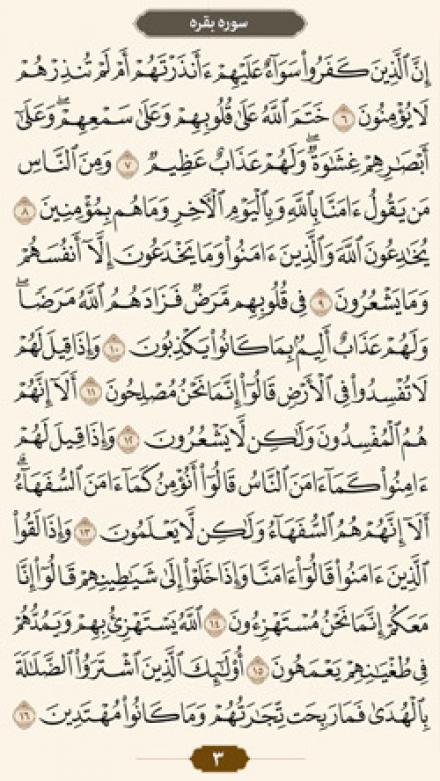 سوره بقره
إِنَّ ٱلَّذِينَ كَفَرُوا۟ سَوَآءٌ عَلَيْهِمْ ءَأَنذَرْتَهُمْ أَمْ لَمْ تُنذِرْهُمْ
لَا يُؤْمِنُونَ ٦ خَتَمَ ٱللَّهُ عَلَىٰ قُلُوبِهِمْ وَعَلَىٰ سَمْعِهِمْ ۖ وَعَلَىٰٓ
أَبْصَٰرِهِمْ غِشَٰوَةٌ ۖ وَلَهُمْ عَذَابٌ عَظِيمٌ ٧ وَمِنَ ٱلنَّاسِ
مَن يَقُولُ ءَامَنَّا بِٱللَّهِ وَبِٱلْيَوْمِ ٱلْءَاخِرِ وَمَا هُم بِمُؤْمِنِينَ ٨
يُخَٰدِعُونَ ٱللَّهَ وَٱلَّذِينَ ءَامَنُوا۟ وَمَا يَخْدَعُونَ إِلَّآ أَنفُسَهُمْ
وَمَا يَشْعُرُونَ ٩ فِى قُلُوبِهِم مَّرَضٌ فَزَادَهُمُ ٱللَّهُ مَرَضًا ۖ
وَلَهُمْ عَذَابٌ أَلِيمٌۢ بِمَا كَانُوا۟ يَكْذِبُونَ ١٠ وَإِذَا قِيلَ لَهُمْ
لَا تُفْسِدُوا۟ فِى ٱلْأَرْضِ قَالُوٓا۟ إِنَّمَا نَحْنُ مُصْلِحُونَ ١١ أَلَآ إِنَّهُمْ
هُمُ ٱلْمُفْسِدُونَ وَلَٰكِن لَّا يَشْعُرُونَ ١٢ وَإِذَا قِيلَ لَهُمْ
ءَامِنُوا۟ كَمَآ ءَامَنَ ٱلنَّاسُ قَالُوٓا۟ أَنُؤْمِنُ كَمَآ ءَامَنَ ٱلسُّفَهَآءُ ۗ
أَلَآ إِنَّهُمْ هُمُ ٱلسُّفَهَآءُ وَلَٰكِن لَّا يَعْلَمُونَ ١٣ وَإِذَا لَقُوا۟
ٱلَّذِينَ ءَامَنُوا۟ قَالُوٓا۟ ءَامَنَّا وَإِذَا خَلَوْا۟ إِلَىٰ شَيَٰطِينِهِمْ قَالُوٓا۟ إِنَّا
مَعَكُمْ إِنَّمَا نَحْنُ مُسْتَهْزِءُونَ ١٤ ٱللَّهُ يَسْتَهْزِئُ بِهِمْ وَيَمُدُّهُمْ
فِى طُغْيَٰنِهِمْ يَعْمَهُونَ ١٥ أُو۟لَٰٓئِكَ ٱلَّذِينَ ٱشْتَرَوُا۟ ٱلضَّلَٰلَةَ
بِٱلْهُدَىٰ فَمَا رَبِحَت تِّجَٰرَتُهُمْ وَمَا كَانُوا۟ مُهْتَدِينَ ١٦
٣